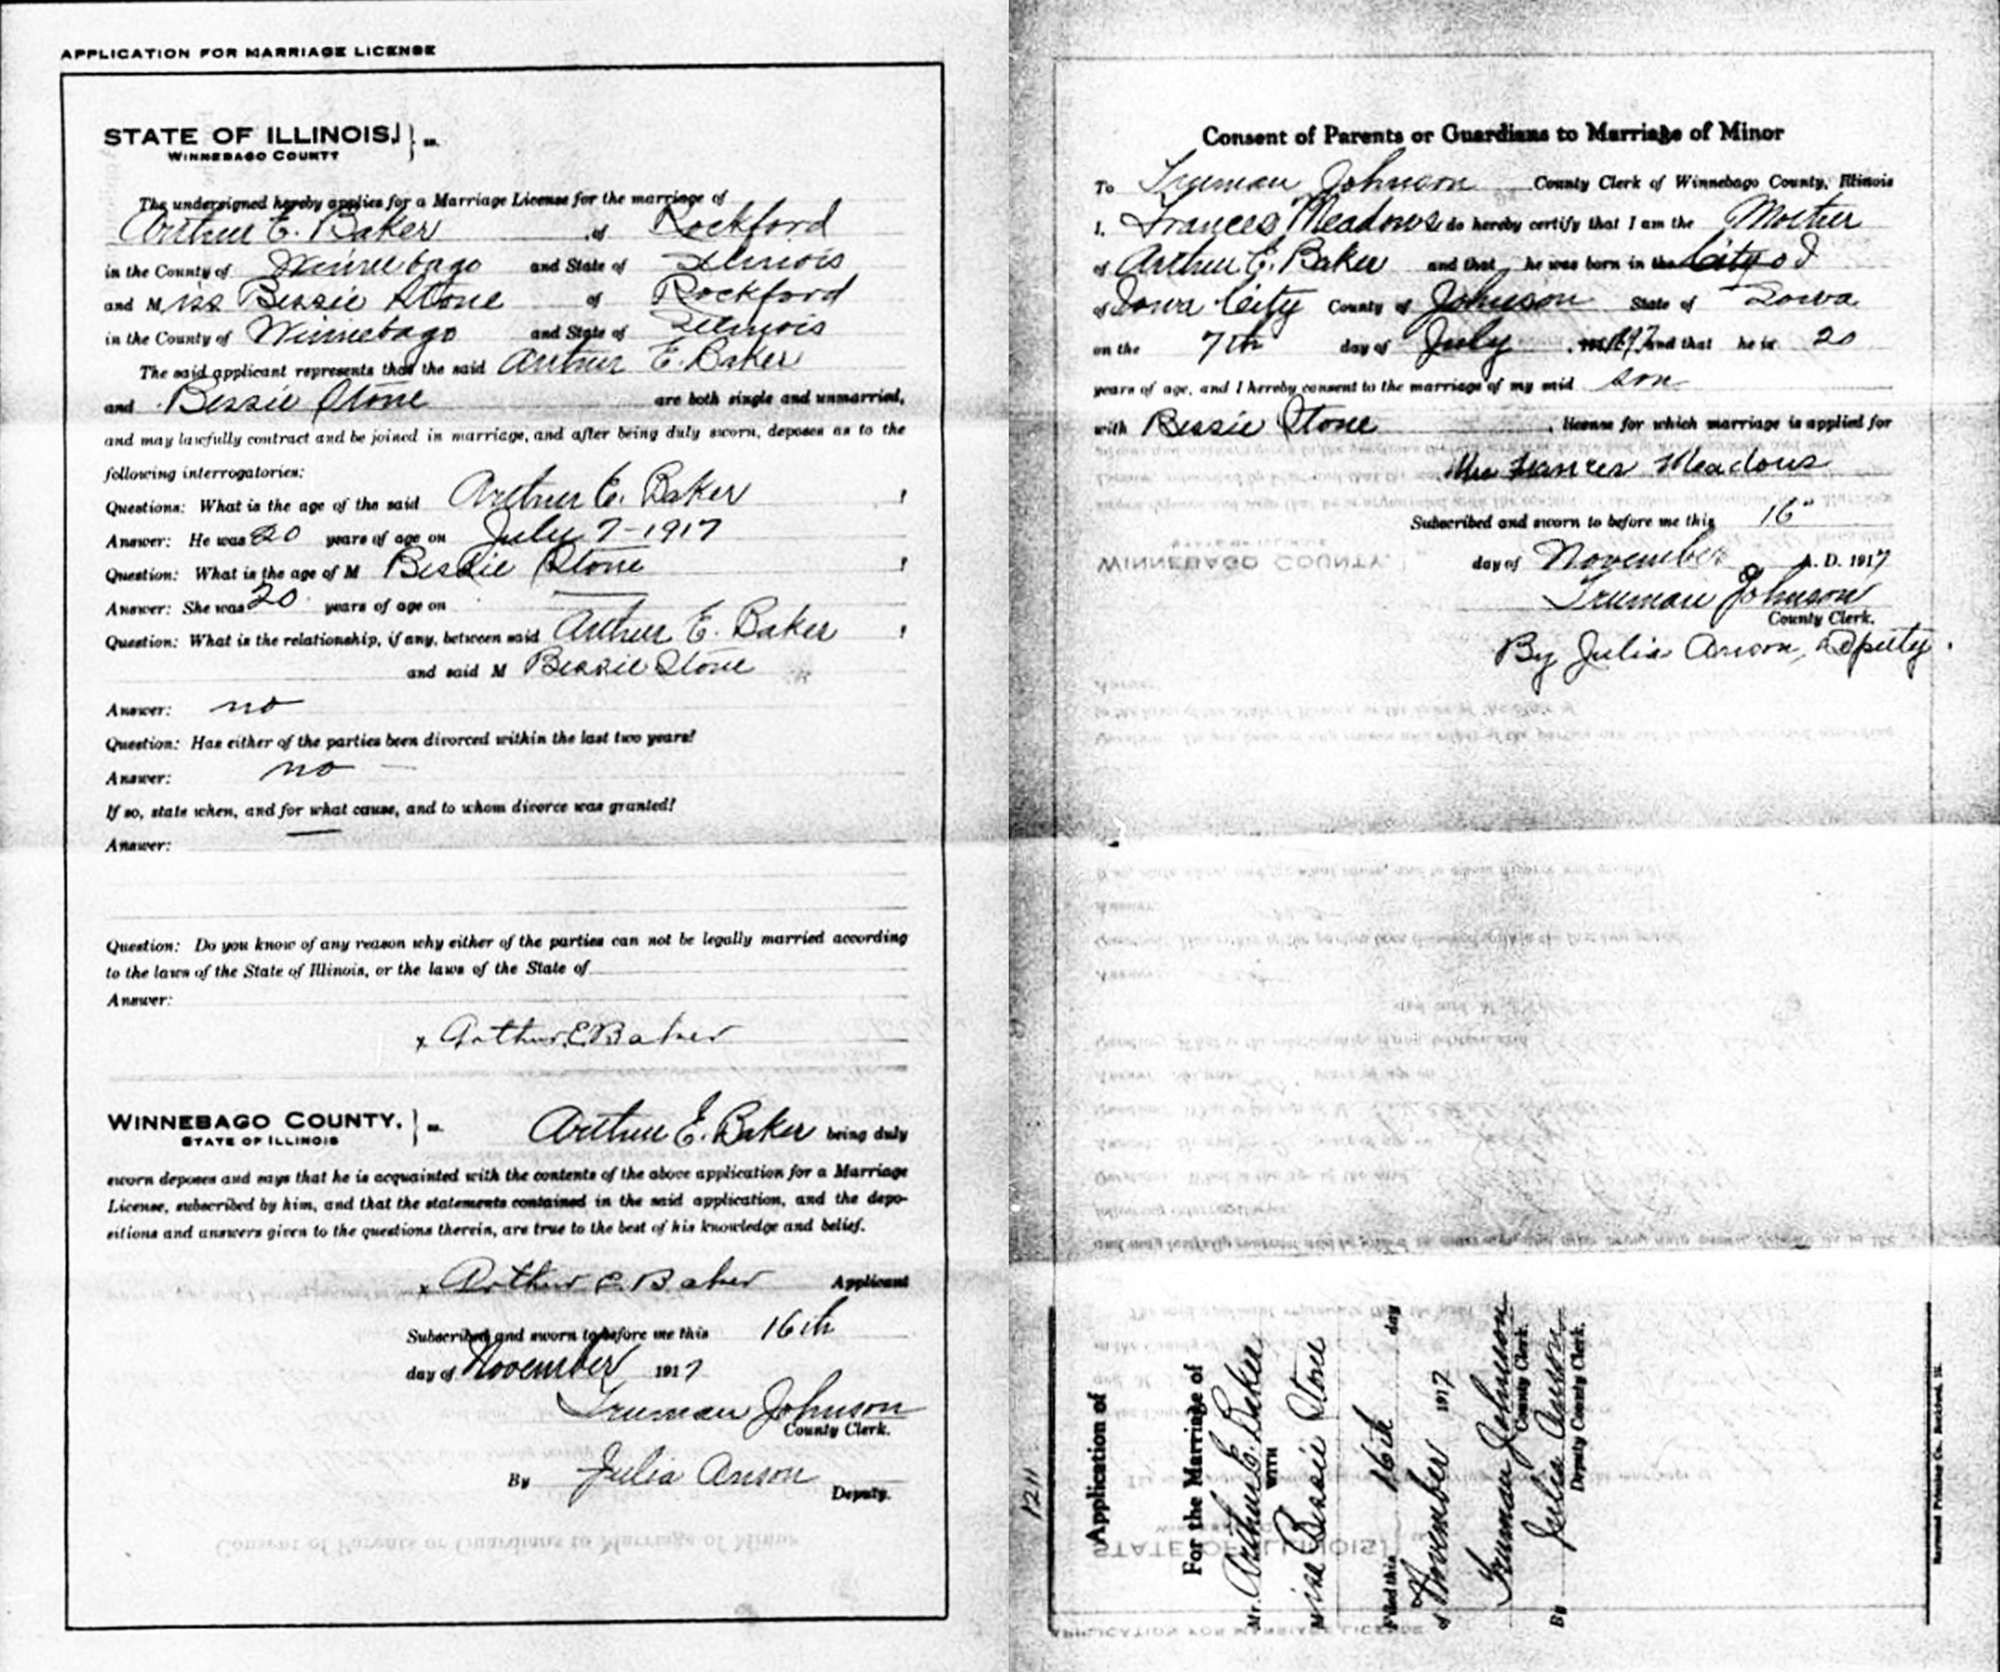 APPLICATION FOR MARRIAGE LICENSE
STATE OF ILLINOIS, } ss.
WINNEBAGO COUNTY
The undersigned hereby applies for a Marriage License for the marriage of
Arthur E. Baker of Rockford
in the County of Winnebago and State of Illinois
and Miss Bessie Stone of Rockford
in the County of Winnebago and State of Illinois
The said applicant represents that the said Arthur E. Baker
and Bessie Stone are both single and unmarried,
and may lawfully contract and be joined in marriage, and after being duly sworn, deposes as to the
following interrogatories:
Questions: What is the age of the said Arthur E. Baker ?
Answer: He was 20 years of age on July 7-1917
Question: What is the age of M Bessie Stone ?
Answer: She was 20 years of age on
Question: What is the relationship, if any, between said Arthur E. Baker ?
and said M Bessie Stone
Answer: no
Question: Has either of the parties been divorced within the last two years?
Answer: no
If so, state when, and for what cause, and to whom divorce was granted?
Answer:
Question: Do you know of any reason why either of the parties can not be legally married according
to the laws of the State of Illinois, or the laws of the State of
Answer:
x Arthur E Baker
WINNEBAGO COUNTY, } ss.
STATE OF ILLINOIS
Arthur E. Baker being duly
sworn deposes and says that he is acquainted with the contents of the above application for a Marriage
License, subscribed by him, and that the statements contained in the said application, and the depo-
sitions and answers given to the questions therein, are true to the best of his knowledge and belief.
x Arthur E Baker Applicant
Subscribed and sworn to before me this 16th
day of November 1917
Truman Johnson
County Clerk.
By Julia Anson
Deputy.
Consent of Parents or Guardians to Marriage of Minor
To Truman Johnson County Clerk of Winnebago County, Illinois
I, Frances Meadows do hereby certify that I am the Mother
of Arthur E. Baker and that he was born in the City of
of Iowa City County of Johnson State of Iowa
on the 7th day of July , 1897 and that he is 20
years of age, and I hereby consent to the marriage of my said son
with Bessie Stone , license for which marriage is applied for
Mrs Frances Meadows
Subscribed and sworn to before me this 16"
day of November A. D. 1917
Truman Johnson
County Clerk.
By Julia Anson, Deputy.
1211
Application of
For the Marriage of
Mr. Arthur E. Baker
WITH
Miss Bessie Stone
Filed this 16th day
of November 1917
Truman Johnson
County Clerk.
By Julia Anson
Deputy County Clerk.
Printing Co., Rockford, Ill.